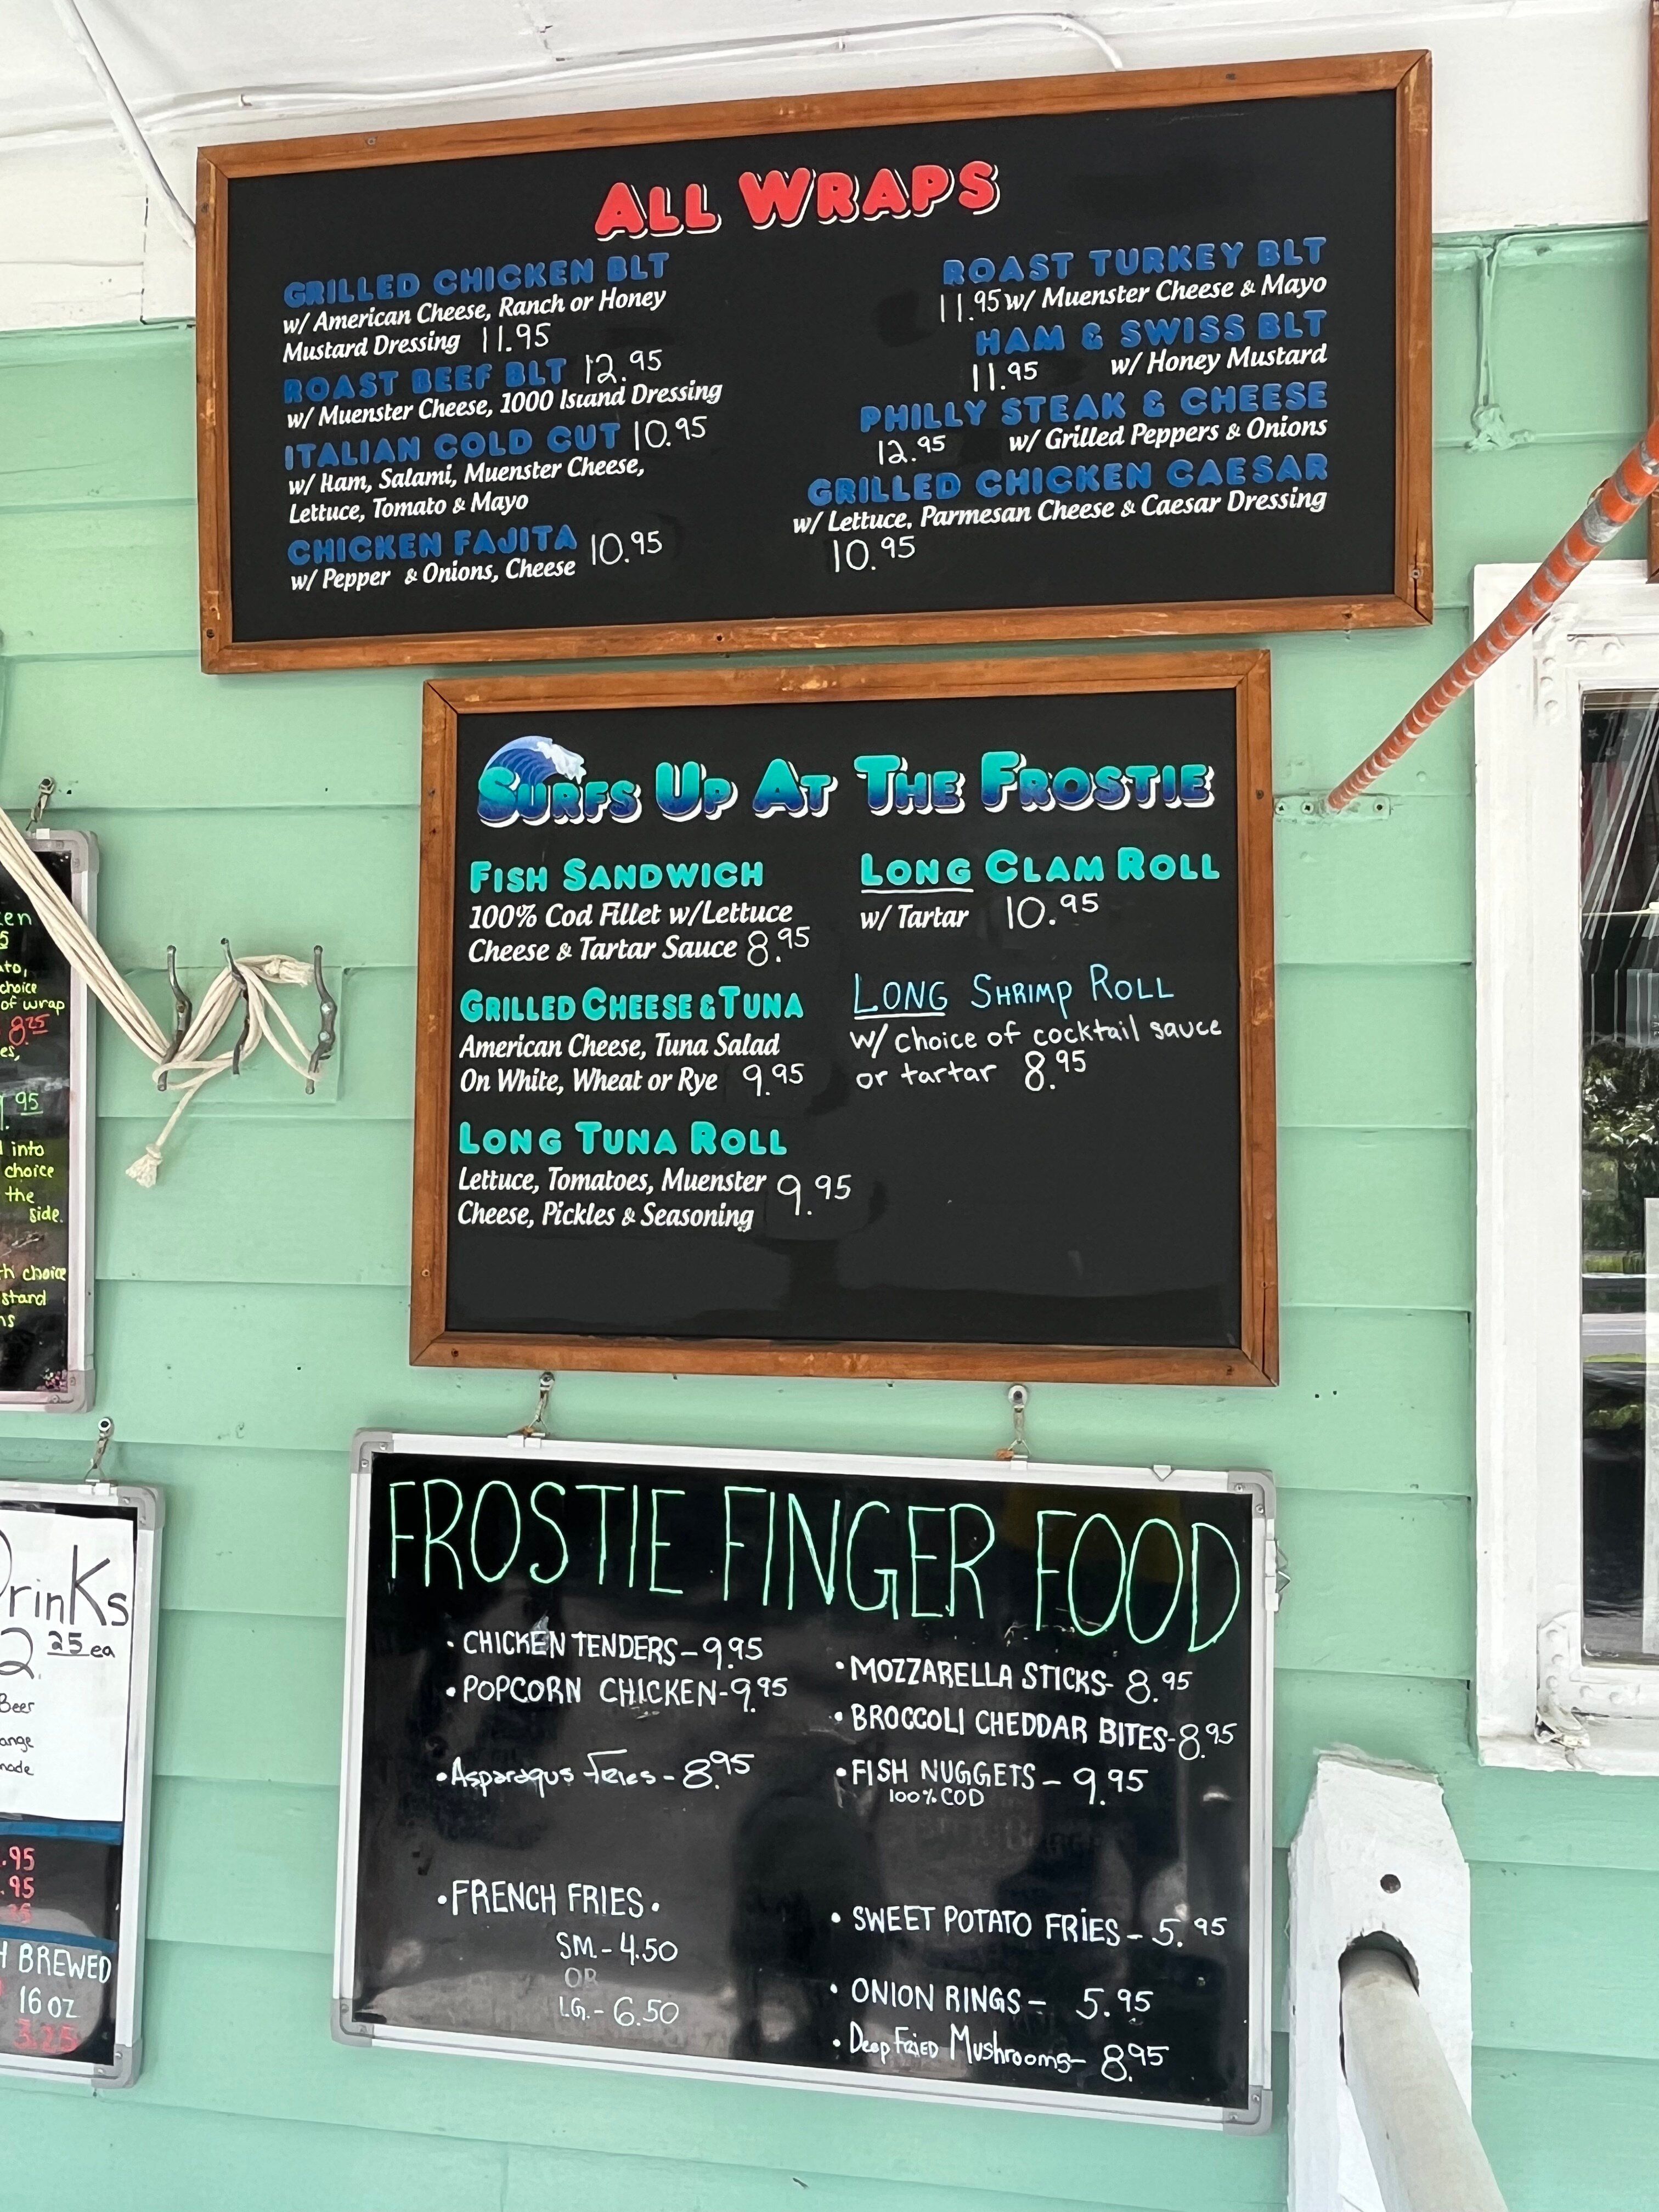 ALL WRAPS
GRILLED CHICKEN BLT
w/ American Cheese, Ranch or Honey
Mustard Dressing 11.95
ROAST BEEF BLT 12.95
w/ Muenster Cheese, 1000 Island Dressing
ITALIAN COLD CUT 10.95
w/ Ham, Salami, Muenster Cheese,
Lettuce, Tomato & Mayo
CHICKEN FAJITA 10.95
w/ Pepper & Onions, Cheese
ROAST TURKEY BLT
11.95 w/ Muenster Cheese & Mayo
HAM & SWISS BLT
11.95 w/ Honey Mustard
PHILLY STEAK & CHEESE
12.95 w/ Grilled Peppers & Onions
GRILLED CHICKEN CAESAR
w/ Lettuce, Parmesan Cheese & Caesar Dressing
10.95
SURFS UP AT THE FROSTIE
FISH SANDWICH
100% Cod Fillet w/Lettuce
Cheese & Tartar Sauce 8.95
GRILLED CHEESE & TUNA
American Cheese, Tuna Salad
On White, Wheat or Rye 9.95
LONG TUNA ROLL
Lettuce, Tomatoes, Muenster 9.95
Cheese, Pickles & Seasoning
LONG CLAM ROLL
w/ Tartar 10.95
LONG SHRIMP ROLL
w/ choice of cocktail sauce
or tartar 8.95
FROSTIE FINGER FOOD
• CHICKEN TENDERS - 9.95
• POPCORN CHICKEN - 9.95
• Asparagus Fries - 8.95
• FRENCH FRIES •
SM. - 4.50
OR
LG. - 6.50
• MOZZARELLA STICKS - 8.95
• BROCCOLI CHEDDAR BITES - 8.95
• FISH NUGGETS - 9.95
100% COD
• SWEET POTATO FRIES - 5.95
• ONION RINGS - 5.95
• Deep FRIED Mushrooms - 8.95
choice
of wrap
8.25
95
into
choice
the
side.
choice
DrinKs
2.25 ea
Beer
.95
.95
BREWED
16 OZ
3.25